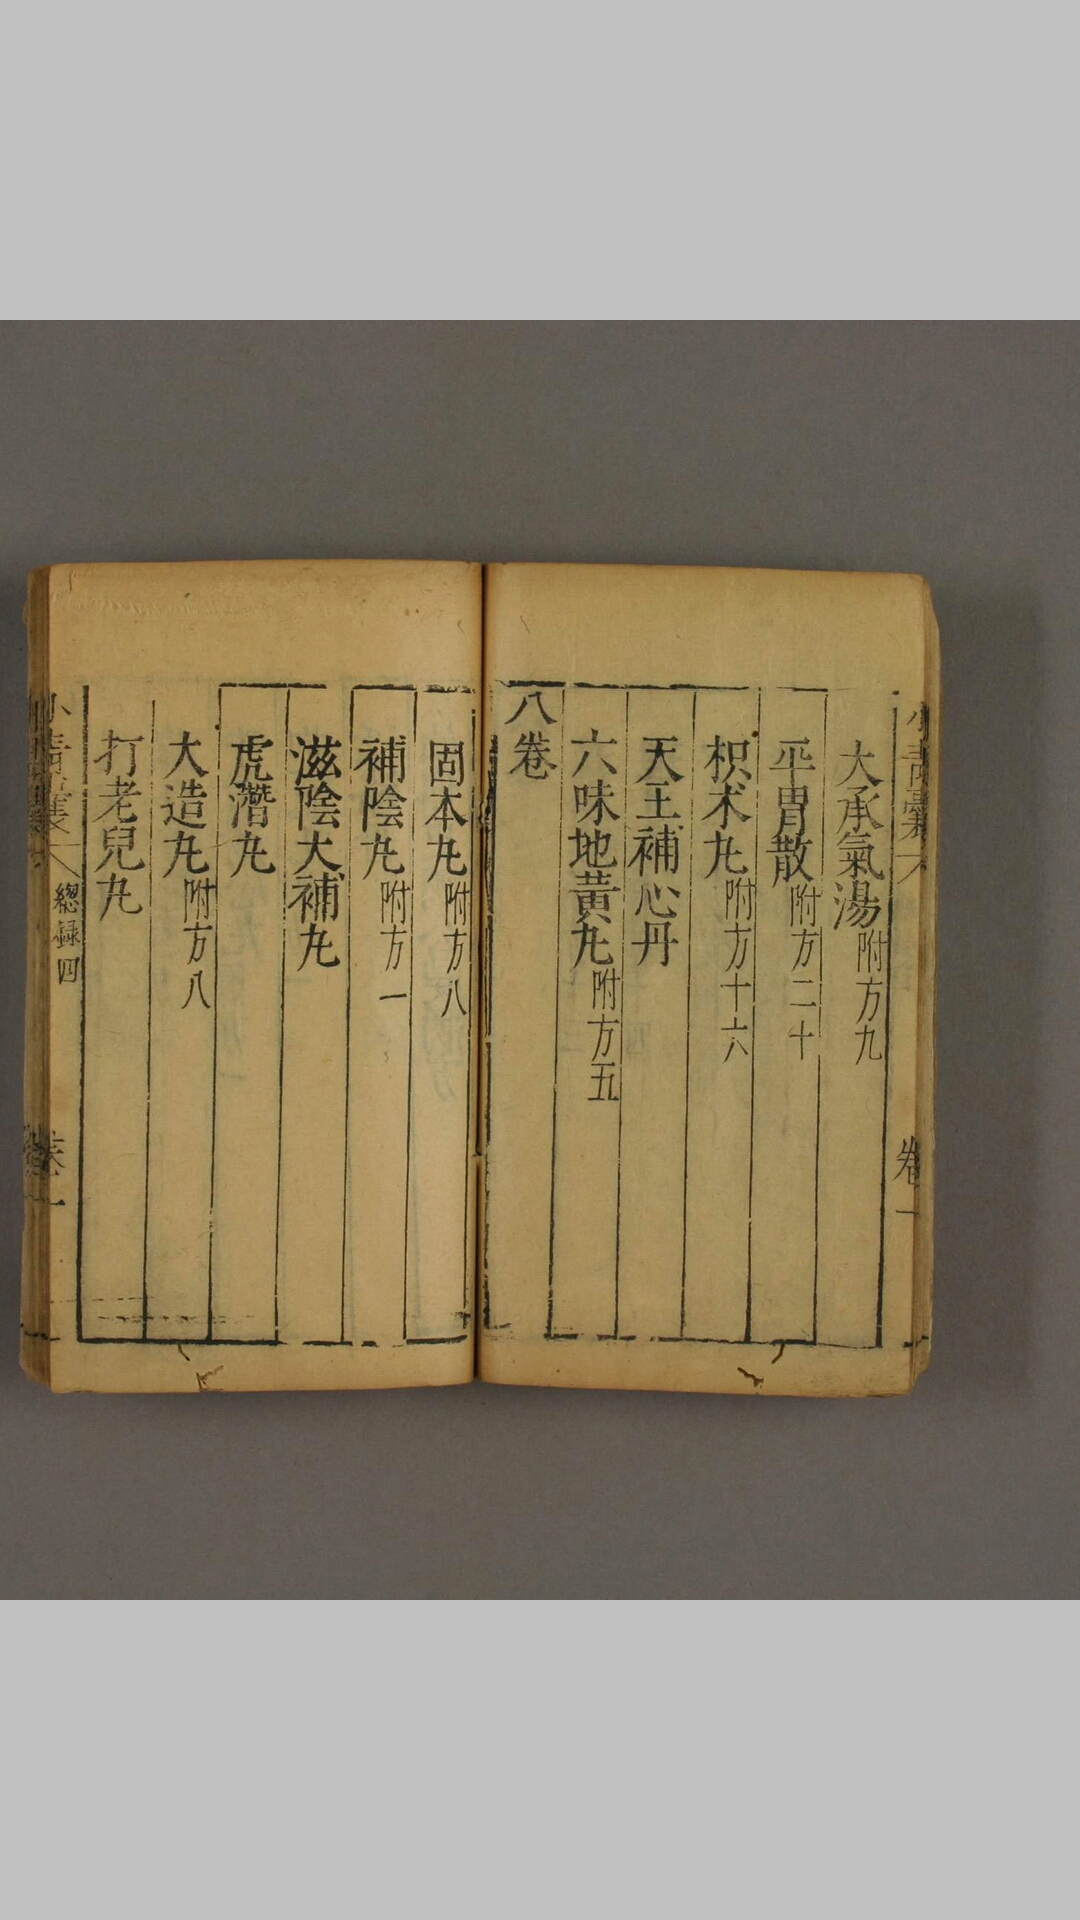 大承氣湯附方九
平胃散附方二十
枳朮丸附方十六
天王補心丹
六味地黃丸附方五
八卷
固本丸附方八
補陰丸附方一
滋陰大補丸
虎潛丸
大造丸附方八
打老兒丸
總錄四
卷一